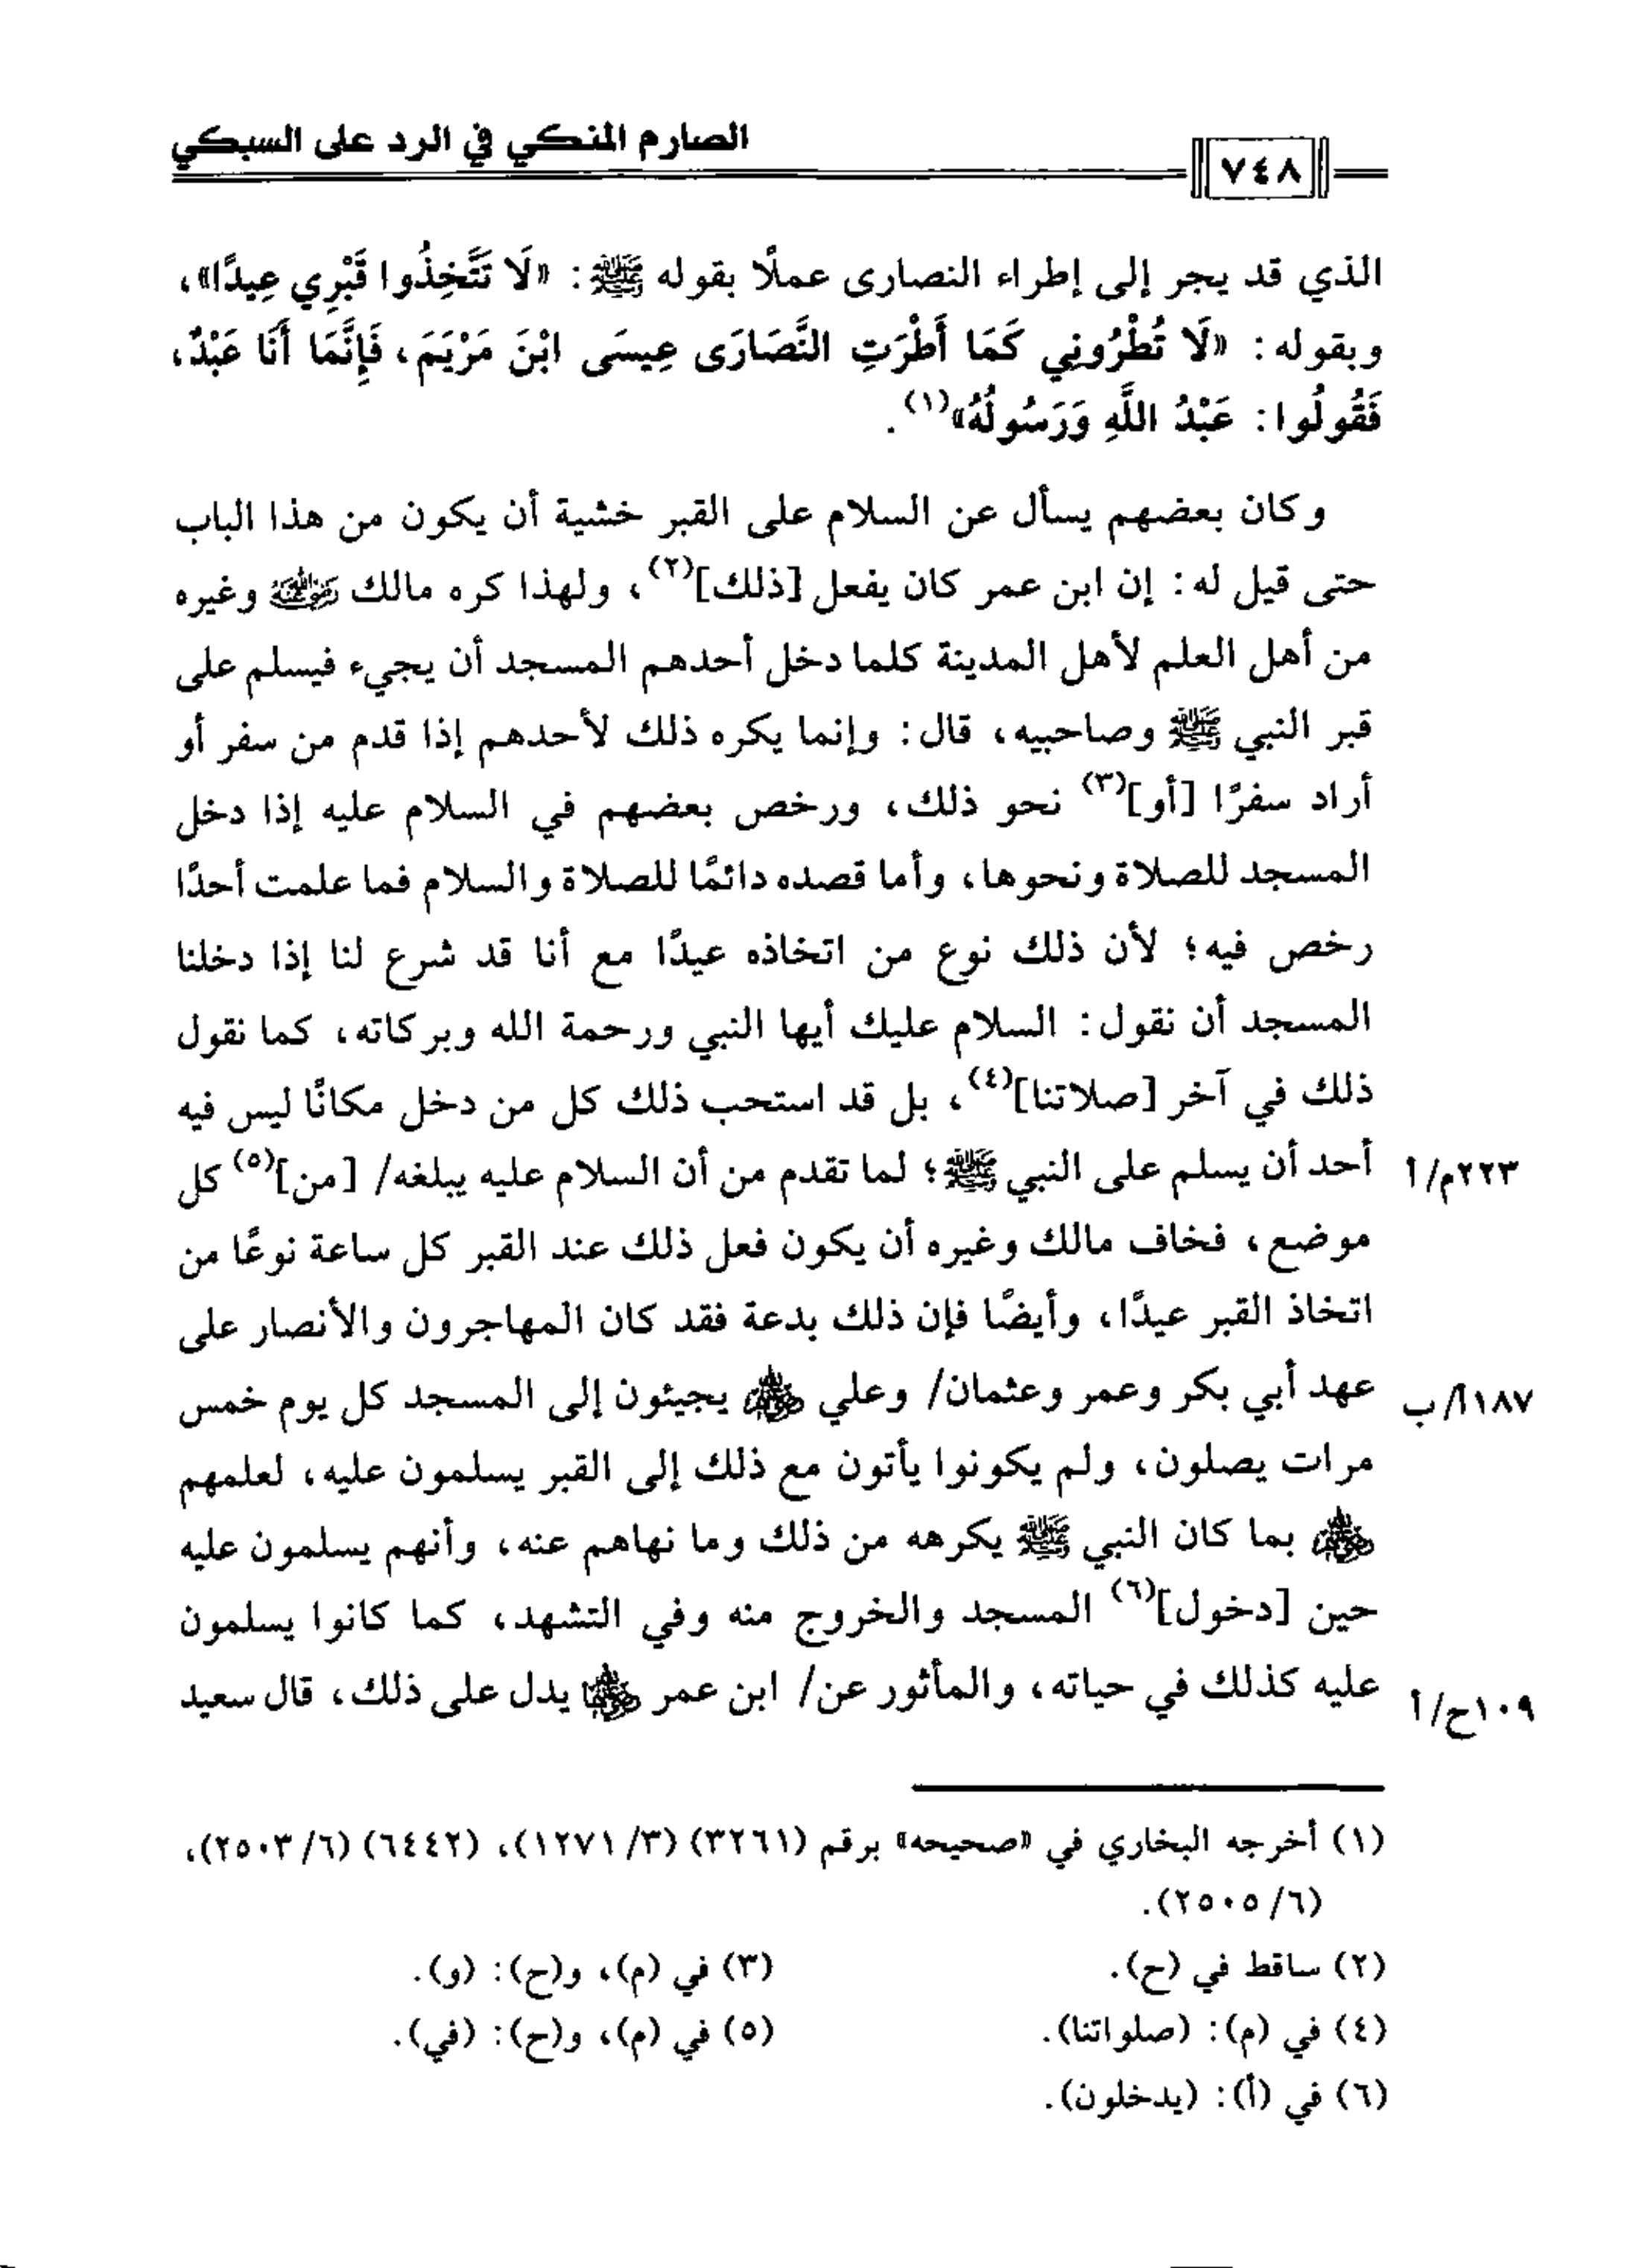 الصارم المنكي في الرد على السبكي
٧٤٨
الذي قد يجر إلى إطراء النصارى عملًا بقوله ﷺ: «لَا تَتَّخِذُوا قَبْرِي عِيدًا»،
وبقوله: «لَا تُطْرُونِي كَمَا أَطْرَتِ النَّصَارَى عِيسَى ابْنَ مَرْيَمَ، فَإِنَّمَا أَنَا عَبْدٌ،
فَقُولُوا: عَبْدُ اللَّهِ وَرَسُولُهُ»(١).
وكان بعضهم يسأل عن السلام على القبر خشية أن يكون من هذا الباب
حتى قيل له: إن ابن عمر كان يفعل [ذلك](٢)، ولهذا كره مالك رضي الله عنه وغيره
من أهل العلم لأهل المدينة كلما دخل أحدهم المسجد أن يجيء فيسلم على
قبر النبي ﷺ وصاحبيه، قال: وإنما يكره ذلك لأحدهم إذا قدم من سفر أو
أراد سفرًا [أو](٣) نحو ذلك، ورخص بعضهم في السلام عليه إذا دخل
المسجد للصلاة ونحوها، وأما قصده دائمًا للصلاة والسلام فما علمت أحدًا
رخص فيه؛ لأن ذلك نوع من اتخاذه عيدًا مع أنا قد شرع لنا إذا دخلنا
المسجد أن نقول: السلام عليك أيها النبي ورحمة الله وبركاته، كما نقول
ذلك في آخر [صلاتنا](٤)، بل قد استحب ذلك كل من دخل مكانًا ليس فيه
أحد أن يسلم على النبي ﷺ؛ لما تقدم من أن السلام عليه يبلغه/ [من](٥) كل
٢٢٣م/أ
موضع، فخاف مالك وغيره أن يكون فعل ذلك عند القبر كل ساعة نوعًا من
اتخاذ القبر عيدًا، وأيضًا فإن ذلك بدعة فقد كان المهاجرون والأنصار على
عهد أبي بكر وعمر وعثمان/ وعلي رضي الله عنهم يجيئون إلى المسجد كل يوم خمس
١٨٧أ/ب
مرات يصلون، ولم يكونوا يأتون مع ذلك إلى القبر يسلمون عليه، لعلمهم
رضي الله عنهم بما كان النبي ﷺ يكرهه من ذلك وما نهاهم عنه، وأنهم يسلمون عليه
حين [دخول](٦) المسجد والخروج منه وفي التشهد، كما كانوا يسلمون
عليه كذلك في حياته، والمأثور عن/ ابن عمر رضي الله عنهما يدل على ذلك، قال سعيد
١٠٩ح/أ
(١) أخرجه البخاري في «صحيحه» برقم (٣٢٦١) (٣/ ١٢٧١)، (٦٤٤٢) (٦/ ٢٥٠٣)،
(٦/ ٢٥٠٥).
(٢) ساقط في (ح).
(٣) في (م)، و(ح): (و).
(٤) في (م): (صلواتنا).
(٥) في (م)، و(ح): (في).
(٦) في (أ): (يدخلون).